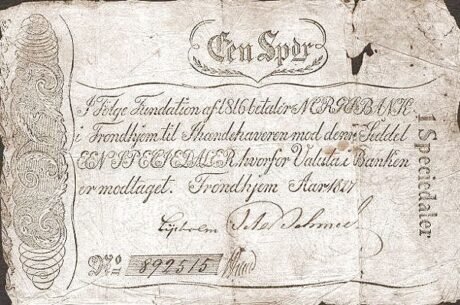 Een Spdr
I Følge Fundation af 1816 betaler NORGES BANK
i Trondhjem til Ihændehaveren mod denne Seddel
EEN SPECIEDALER, hvorfor Valuta i Banken
er modtaget. Trondhjem Aar 1817
No 892515
1 Speciedaler